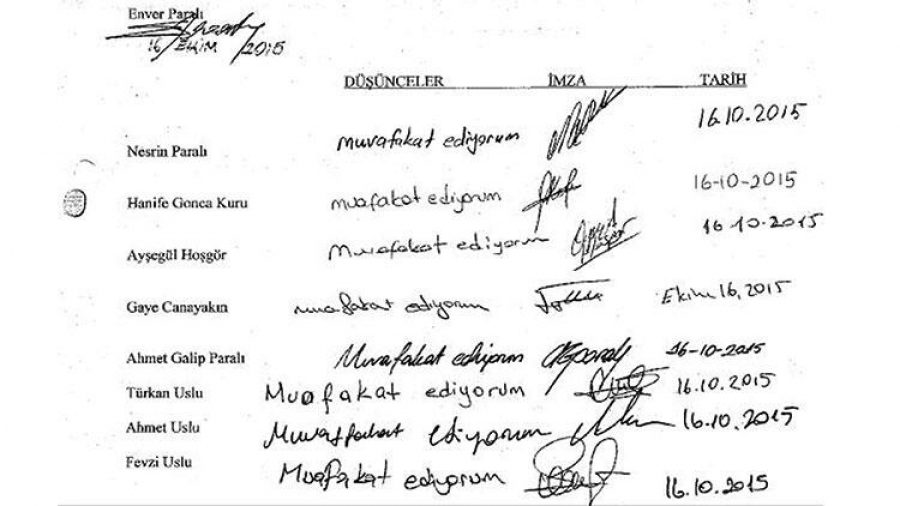 Enver Paralı
16/EKİM/2015
DÜŞÜNCELER İMZA TARİH
Nesrin Paralı Muvafakat ediyorum 16.10.2015
Hanife Gonca Kuru muafakat ediyorum 16-10-2015
Ayşegül Hoşgör Muvafakat ediyorum 16.10.2015
Gaye Canayakın muafakat ediyorum Ekim 16, 2015
Ahmet Galip Paralı Muvafakat ediyorum 16-10-2015
Türkan Uslu Muafakat ediyorum 16.10.2015
Ahmet Uslu Muvaffakat ediyorum 16.10.2015
Fevzi Uslu Muafakat ediyorum 16.10.2015